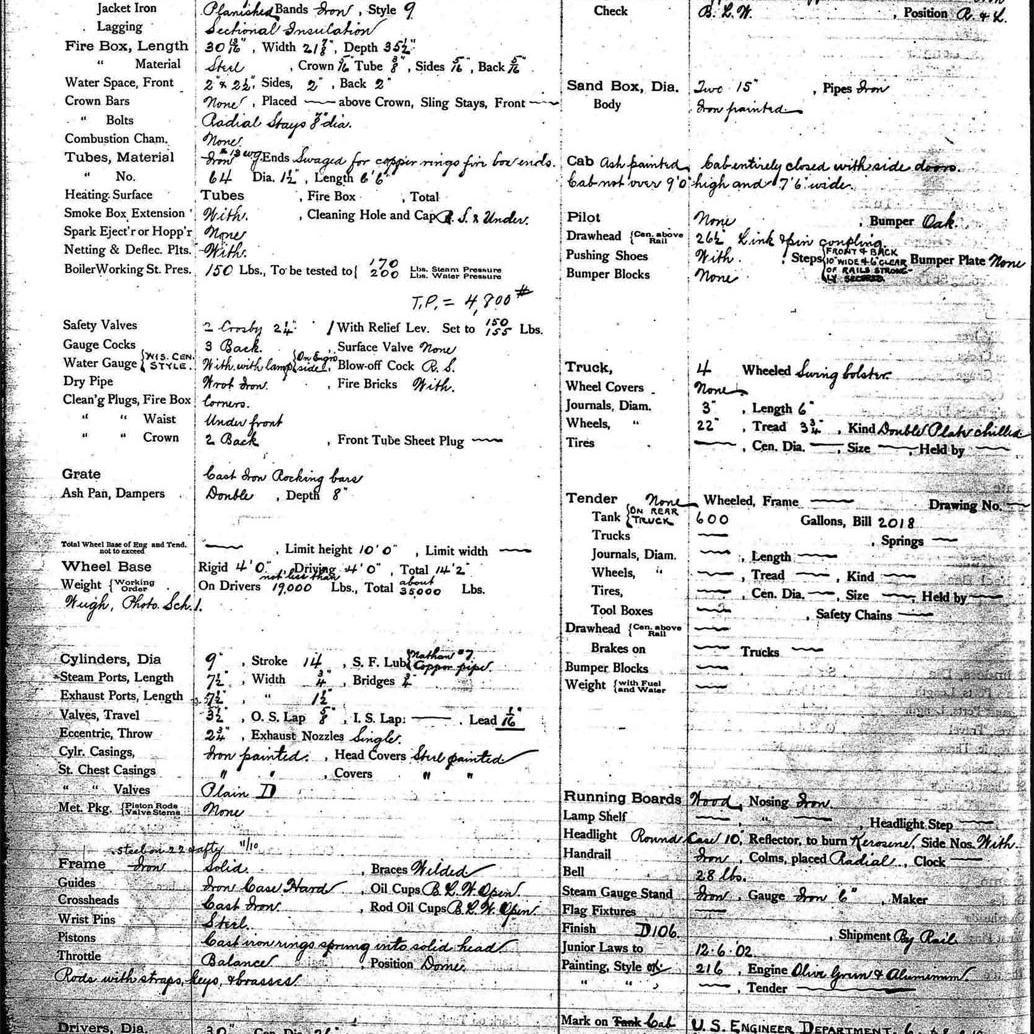 Jacket Iron Planished Bands Iron, Style 9
Lagging Sectional Insulation
Fire Box, Length 30 13/16", Width 21 7/8, Depth 35 1/2"
" Material Steel, Crown 5/16 Tube 3/8", Sides 5/16, Back 5/16
Water Space, Front 2" & 2 1/2, Sides, 2", Back 2"
Crown Bars None, Placed — above Crown, Sling Stays, Front —
" Bolts Radial Stays 7/8" dia.
Combustion Cham. None.
Tubes, Material Iron # 13 wg. Ends Swaged for copper rings fire box ends.
" No. 64 Dia. 1 1/2", Length 6'6"
Heating Surface Tubes , Fire Box , Total
Smoke Box Extension With. , Cleaning Hole and Cap R. S. & Under.
Spark Eject'r or Hopp'r None
Netting & Deflec. Plts. With.
Boiler Working St. Pres. 150 Lbs., To be tested to { 170 Lbs. Steam Pressure
200 Lbs. Water Pressure
T.P. = 4,800#
Safety Valves 2 Crosby 2 1/4" / With Relief Lev. Set to 150 155 Lbs.
Gauge Cocks 3 Back. , Surface Valve None
Water Gauge { WIS. CEN. STYLE. With, with lamp { On Eng'rs side. , Blow-off Cock R. S.
Dry Pipe Wrot Iron. , Fire Bricks With.
Clean'g Plugs, Fire Box Corners.
" " Waist Under front
" " Crown 2 Back , Front Tube Sheet Plug —
Grate Cast Iron Rocking bars
Ash Pan, Dampers Double , Depth 8"
Total Wheel Base of Eng and Tend. not to exceed — , Limit height 10'0" , Limit width —
Wheel Base Rigid 4'0", Driving 4'0" , Total 14'2"
Weight { Working Order On Drivers not less than 19,000 Lbs., Total about 35000 Lbs.
Weigh, Photo. Sch. 1.
Cylinders, Dia 9" , Stroke 14 , S. F. Lub { Nathan #7 Copper pipe.
Steam Ports, Length 7 1/2" , Width 3/4" , Bridges
Exhaust Ports, Length 7 1/2" , " 1 1/2"
Valves, Travel 3 1/2" , O. S. Lap 5/8" , I. S. Lap: — . Lead 1/16"
Eccentric, Throw 2 3/4" , Exhaust Nozzles Single.
Cylr. Casings, Iron painted. , Head Covers Steel painted
St. Chest Casings " " , Covers " "
" " Valves Plain D
Met. Pkg. { Piston Rods Valve Stems None
steel on 22 & after 11/10
Frame Iron Solid. , Braces Welded
Guides Iron Case Hard , Oil Cups B. L. W. Open
Crossheads Cast Iron. , Rod Oil Cups B. L. W. Open.
Wrist Pins Steel.
Pistons Cast iron rings sprung into solid head
Throttle Balance , Position Dome.
Rods with straps, keys, & brasses.
Drivers, Dia. 30"
Check B. L. W. , Position R. & L.
Sand Box, Dia. Two 15" , Pipes Iron
Body Iron painted
Cab Ash painted, Cab entirely closed with side doors.
Cab not over 9'0" high and 7'6" wide.
Pilot None , Bumper Oak.
Drawhead { Cen. above Rail 26 1/2" Link & pin coupling.
Pushing Shoes With , Steps { FRONT & BACK 10" WIDE & 6" CLEAR OF RAILS STRONGLY SECURED. Bumper Plate None
Bumper Blocks None
Truck, 4 Wheeled Swing bolster.
Wheel Covers None
Journals, Diam. 3" , Length 6"
Wheels, " 22" , Tread 3 3/4" , Kind Double Plate chilled
Tires — , Cen. Dia. — , Size — , Held by —
Tender None Wheeled, Frame — Drawing No. —
Tank { ON REAR TRUCK 600 Gallons, Bill 2018
Trucks — , Springs —
Journals, Diam. — , Length —
Wheels, " — , Tread — , Kind —
Tires, — , Cen. Dia. — , Size — , Held by —
Tool Boxes — , Safety Chains —
Drawhead { Cen. above Rail —
Brakes on — Trucks —
Bumper Blocks —
Weight { with Fuel and Water —
Running Boards Wood , Nosing Iron
Lamp Shelf — , " — Headlight Step —
Headlight Round Case 10, Reflector, to burn Kerosene, Side Nos. With.
Handrail Iron , Colms, placed Radial , Clock —
Bell 28 lbs.
Steam Gauge Stand Iron , Gauge Iron 6" , Maker
Flag Fixtures —
Finish D106. , Shipment By Rail.
Junior Laws to 12.6.02.
Painting, Style of 216 , Engine Olive Green & Aluminum
" " " , Tender —
Mark on Tank Cab U. S. ENGINEER DEPARTMENT,